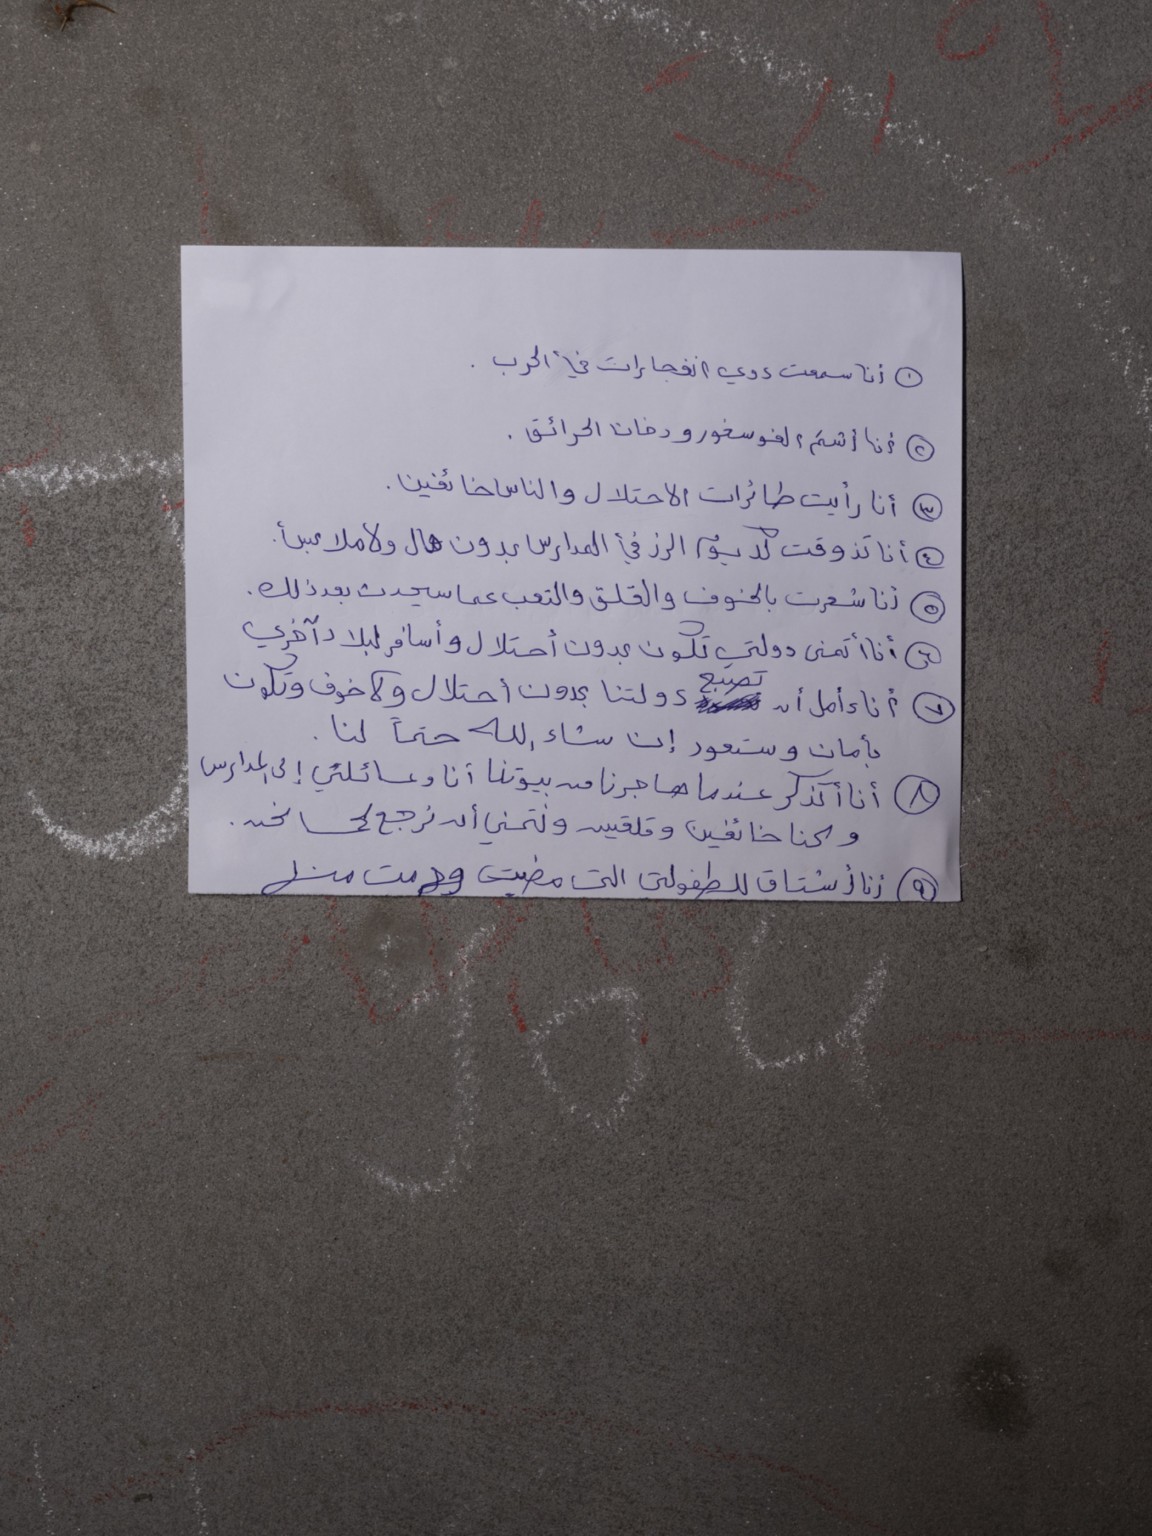 ١ أنا سمعت دوي انفجارات في الحرب .
٢ أنا أشم الفوسفور ودخان الحرائق .
٣ أنا رأيت طائرات الاحتلال والناس خائفين .
٤ أنا تذوقت كل يوم الرز في المدارس بدون مال ولا ملابس .
٥ أنا شعرت بالخوف والقلق والتعب عما سيحدث بعد ذلك .
٦ أنا أتمنى دولتي تكون بدون أحتلال وأسافر لبلاد آخرى
٧ أنا أمل أن تصبح دولتنا بدون أحتلال ولا خوف وتكون
بأمان وستعود إن شاء الله حتماً لنا .
٨ أنا أتذكر عندما هاجرنا من بيوتنا أنا وعائلتي إلى المدارس
وكنا خائفين وقلقين ونتمني أن نرجع كما نحن .
٩ أنا أشتاق للطفولتي التي مضيت وحرمت منها